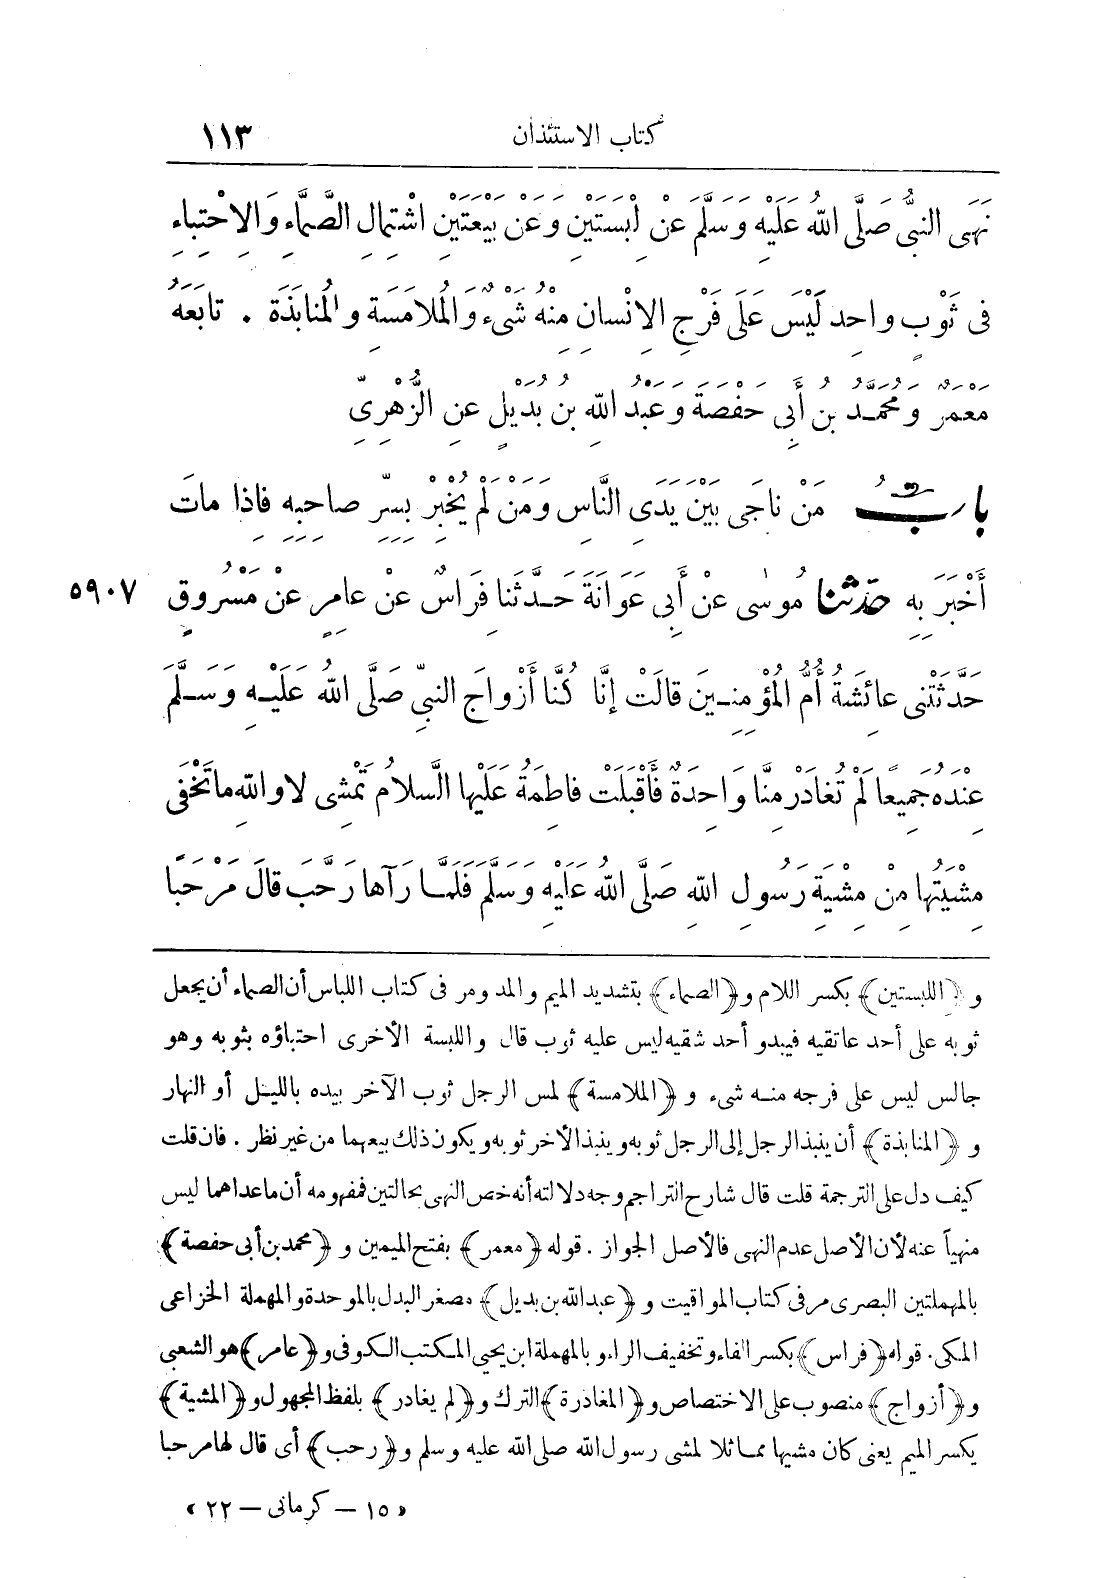 كتاب الاستئذان ١١٣
نَهَى النبيُّ صَلَّى اللهُ عَلَيْهِ وَسَلَّمَ عَنْ لِبْسَتَيْنِ وَعَنْ بَيْعَتَيْنِ اشْتِمَالِ الصَّمَّاءِ وَالِاحْتِبَاءِ
فى ثَوْبٍ واحِدٍ لَيْسَ عَلَى فَرْجِ الإنْسانِ مِنْهُ شَىْءٌ وَالمُلامَسَةِ والمُنابَذَةِ . تابَعَهُ
مَعْمَرٌ وَمُحَمَّدُ بنُ أَبِى حَفْصَةَ وعَبْدُ اللهِ بنُ بُدَيْلٍ عَنِ الزُّهْرِىِّ
بابُ مَنْ ناجَى بَيْنَ يَدَىِ النَّاسِ وَمَنْ لَمْ يُخْبِرْ بِسِرِّ صاحِبِهِ فاذا ماتَ
أَخْبَرَ بِهِ حدّثنا مُوسٰى عَنْ أَبِى عَوَانَةَ حَدَّثَنا فِرَاسٌ عَنْ عامِرٍ عَنْ مَسْرُوقٍ ٥٩٠٧
حَدَّثَتْنِى عائِشَةُ أُمُّ المُؤْمِنِينَ قالَتْ إنَّا كُنَّا أَزْواجَ النبىِّ صَلَّى اللهُ عَلَيْهِ وَسَلَّمَ
عِنْدَهُ جَمِيعًا لَمْ تُغادَرْ مِنَّا وَاحِدَةٌ فَأَقْبَلَتْ فاطِمَةُ عَلَيْها السَّلامُ تَمْشِى لا واللهِ ما تَخْفَى
مِشْيَتُها مِنْ مِشْيَةِ رَسُولِ اللهِ صَلَّى اللهُ عَلَيْهِ وَسَلَّمَ فَلَمَّا رَآها رَحَّبَ قالَ مَرْحَبًا
و ﴿اللبستين﴾ بكسر اللام و﴿الصماء﴾ بتشديد الميم والمد ومر فى كتاب اللباس أن الصماء أن يجعل
ثوبه على أحد عاتقيه فيبدو أحد شقيه ليس عليه ثوب قال واللبسة الأخرى احتباؤه بثوبه وهو
جالس ليس على فرجه منه شىء و ﴿الملامسة﴾ لمس الرجل ثوب الآخر بيده بالليل أو النهار
و ﴿المنابذة﴾ أن ينبذ الرجل إلى الرجل ثوبه وينبذ الأخر ثوبه ويكون ذلك بيعهما من غير نظر . فان قلت
كيف دل على الترجمة قلت قال شارح التراجم وجه دلالته أنه خص النهى بحالتين فمفهومه أن ماعداهما ليس
منهياً عنه لأن الأصل عدم النهى فالأصل الجواز . قوله ﴿معمر﴾ بفتح الميمين و ﴿محمد بن أبى حفصة﴾
بالمهملتين البصرى مر فى كتاب المواقيت و ﴿عبد الله بن بديل﴾ مصغر البدل بالموحدة والمهملة الخزاعى
المكى. قوله ﴿فراس﴾ بكسر الفاء وتخفيف الراء وبالمهملة ابن يحيى المكتب الكوفى و﴿عامر﴾ هو الشعبى
و﴿أزواج﴾ منصوب على الاختصاص و﴿المغادرة﴾ الترك و﴿لم يغادر﴾ بلفظ المجهول و﴿المشية﴾
بكسر الميم يعنى كان مشيها مماثلا لمشى رسول الله صلى الله عليه وسلم و﴿رحب﴾ أى قال لها مرحبا
« ١٥ – كرمانى – ٢٢ »